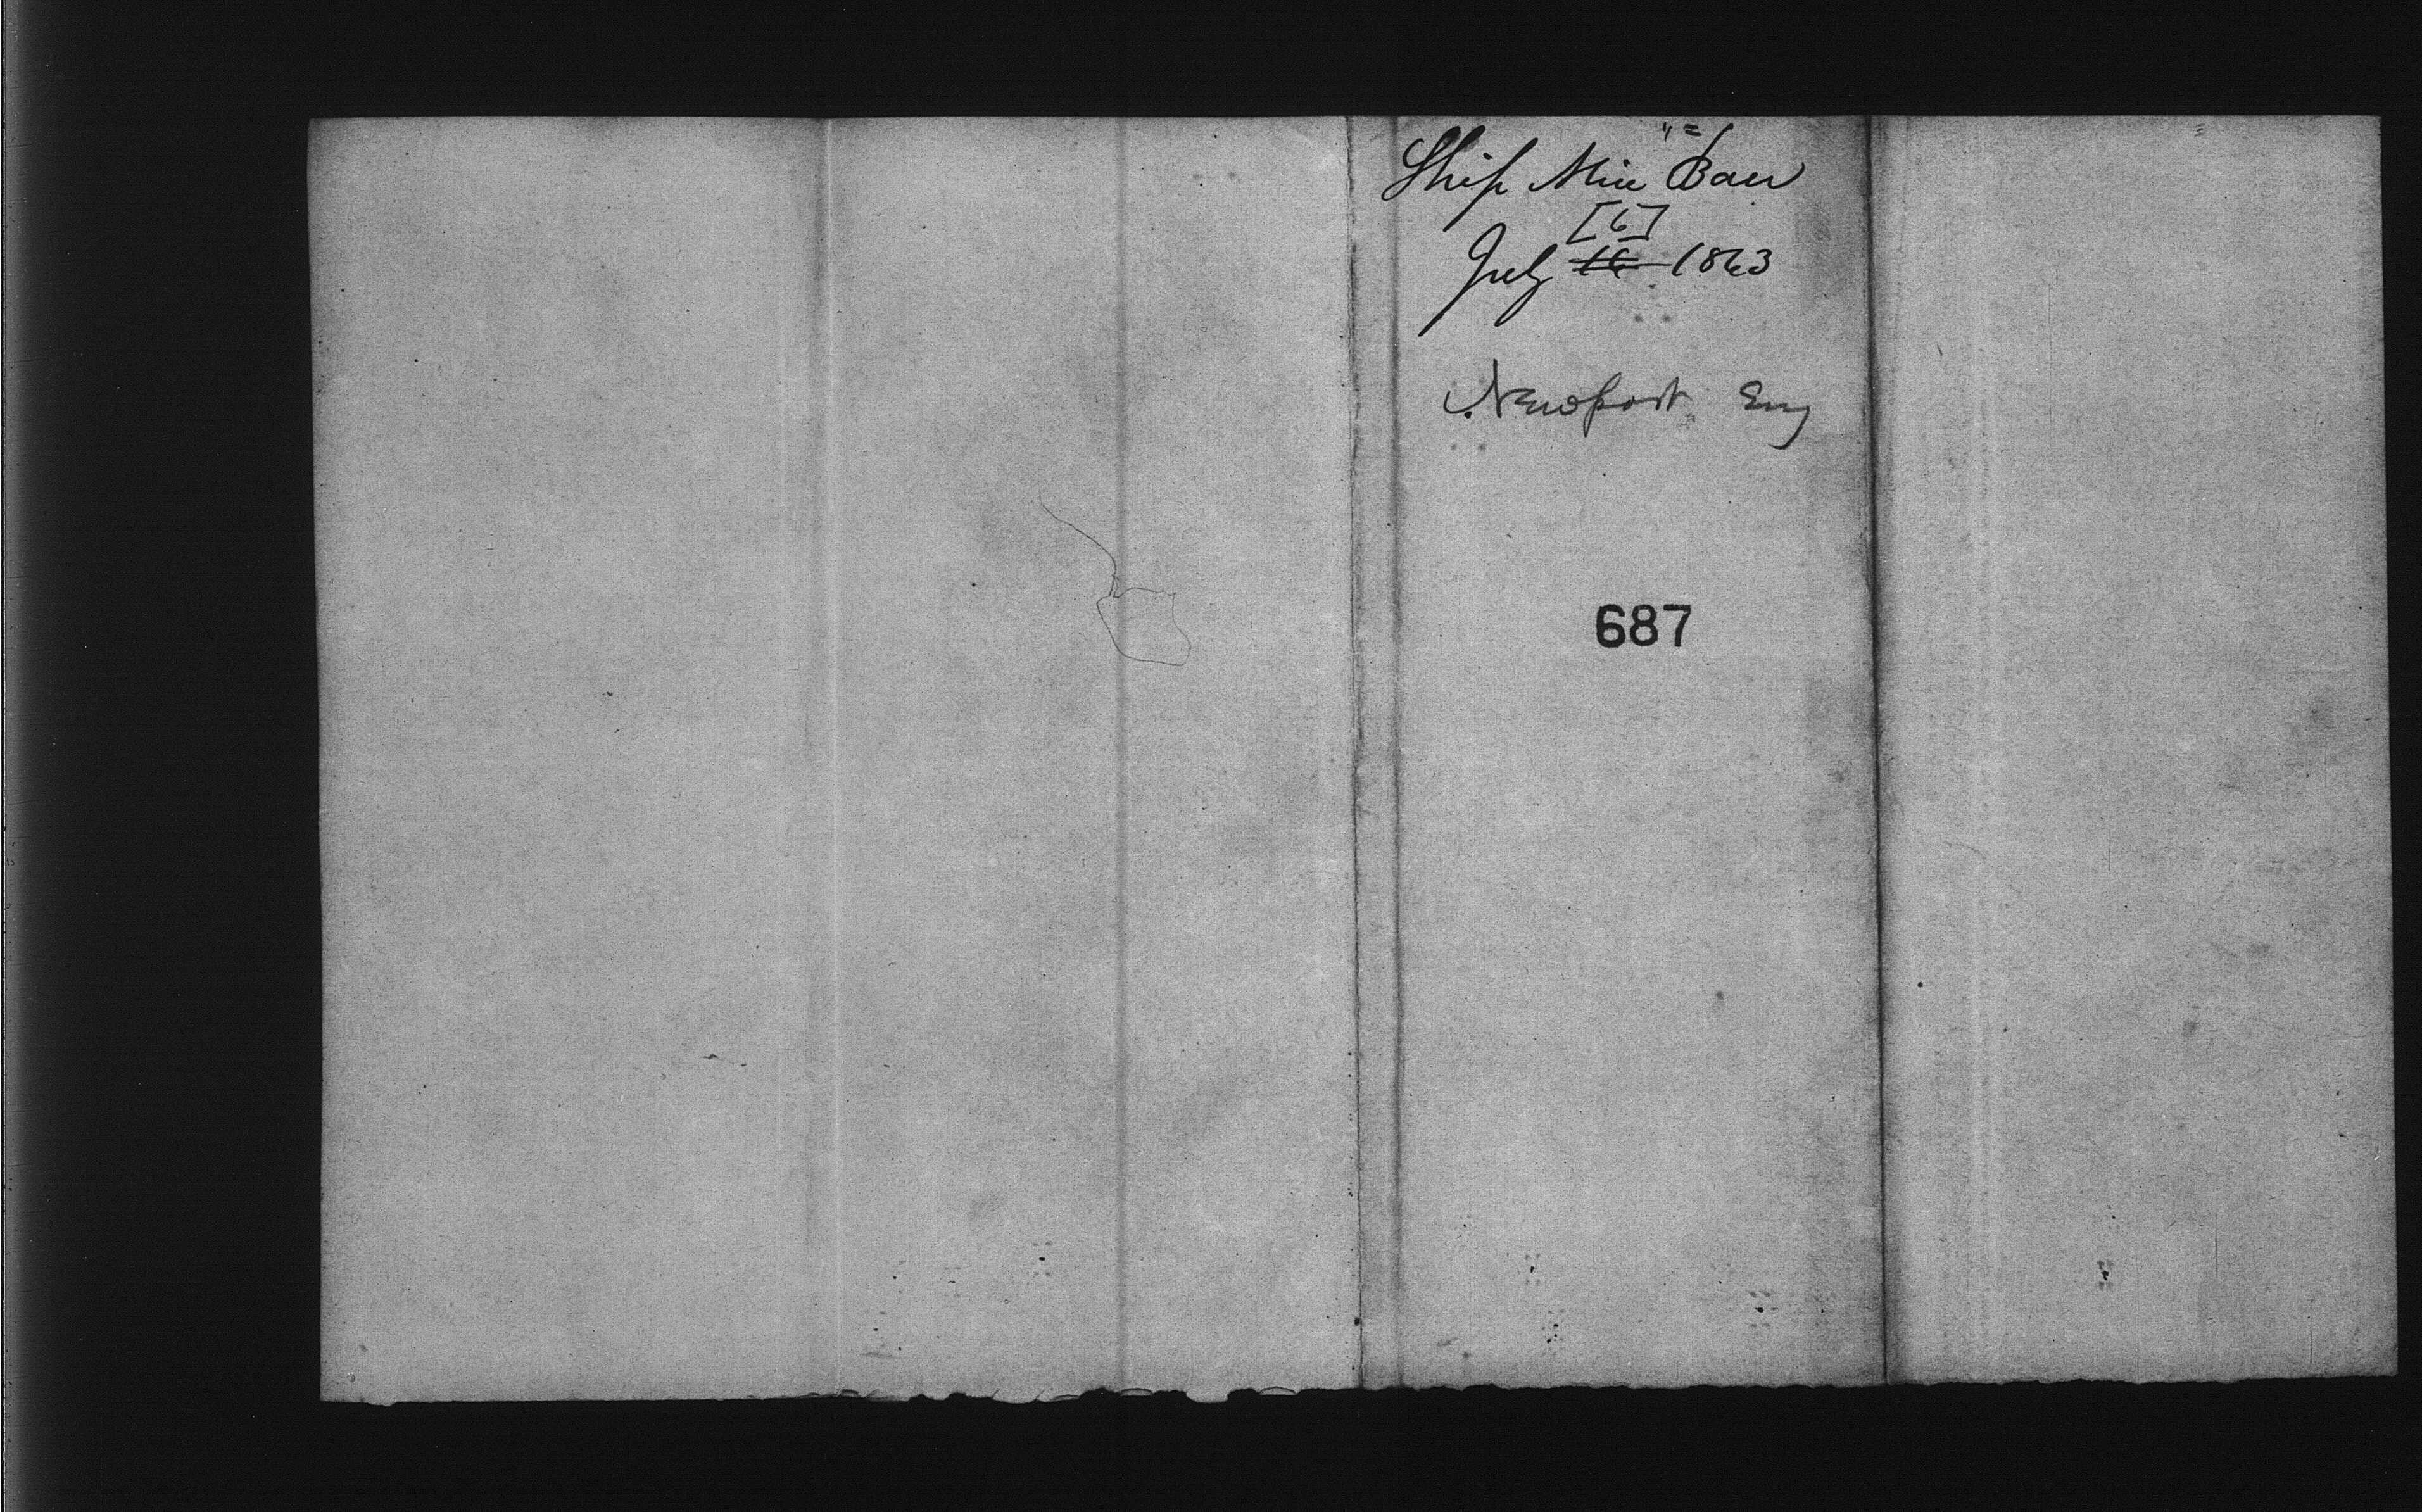 Ship
[6]
July 16 1863
Newport Eng
687